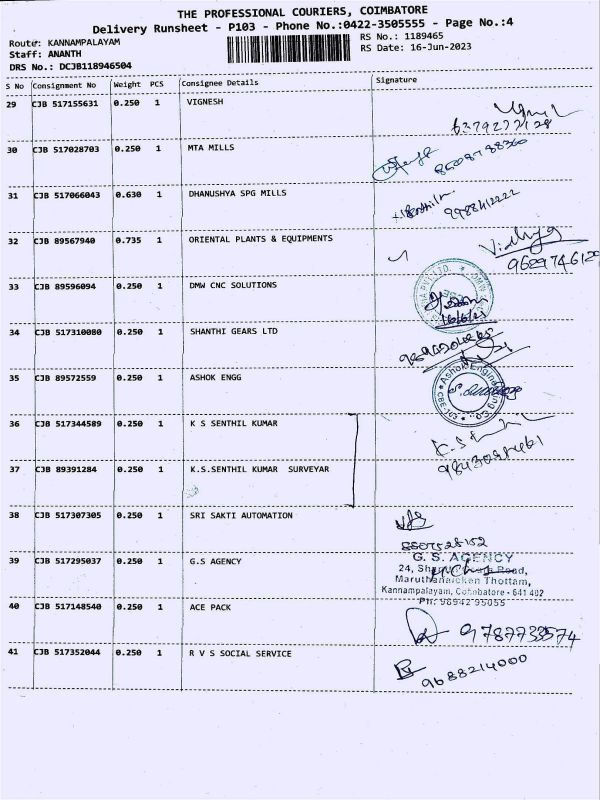 THE PROFESSIONAL COURIERS, COIMBATORE
Delivery Runsheet - P103 - Phone No.:0422-3505555 - Page No.:4
Route: KANNAMPALAYAM RS No.: 1189465
Staff: ANANTH RS Date: 16-Jun-2023
DRS No.: DCJB118946504
S No Consignment No Weight PCS Consignee Details Signature
29 CJB 517155631 0.250 1 VIGNESH
30 CJB 517028703 0.250 1 MTA MILLS
31 CJB 517066043 0.630 1 DHANUSHYA SPG MILLS
32 CJB 89567940 0.735 1 ORIENTAL PLANTS & EQUIPMENTS
Vidhya
9629746120
33 CJB 89596094 0.250 1 DMW CNC SOLUTIONS
34 CJB 517310080 0.250 1 SHANTHI GEARS LTD
35 CJB 89572559 0.250 1 ASHOK ENGG
36 CJB 517344589 0.250 1 K S SENTHIL KUMAR
37 CJB 89391284 0.250 1 K.S.SENTHIL KUMAR SURVEYAR
38 CJB 517307305 0.250 1 SRI SAKTI AUTOMATION
39 CJB 517295037 0.250 1 G.S AGENCY
G. S. AGENCY
24, Road,
Maruthanaicken Thottam,
Kannampalayam, Coimbatore - 641 402
Ph: 98942 95055
40 CJB 517148540 0.250 1 ACE PACK
9787733574
41 CJB 517352044 0.250 1 R V S SOCIAL SERVICE
9688214000